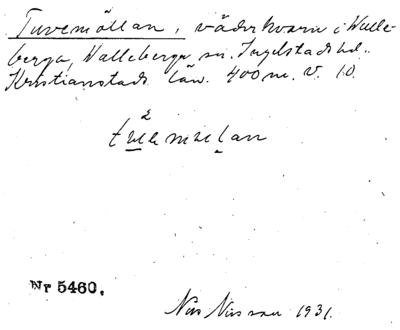 Tuvemöllan, väderkvarn i Valle-
berga, Valleberga sn. Ingelstads hd.
Kristianstads län. 400 m. V. 10
2
Nr 5460.
Nils Nilsson 1931.